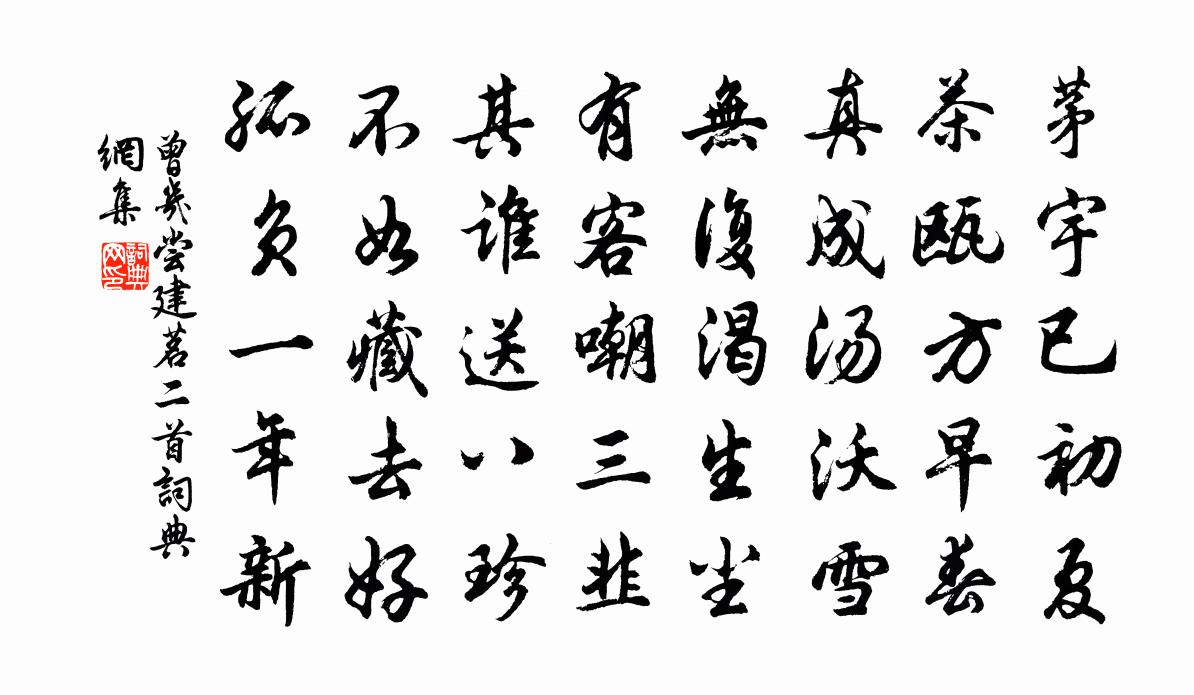 茅宇已初夏
茶甌方早春
真成湯沃雪
無復渴生塵
有客嘲三韭
其誰送八珍
不如藏去好
孤負一年新
曾幾嘗建茗二首詞典
網集
詞典網印